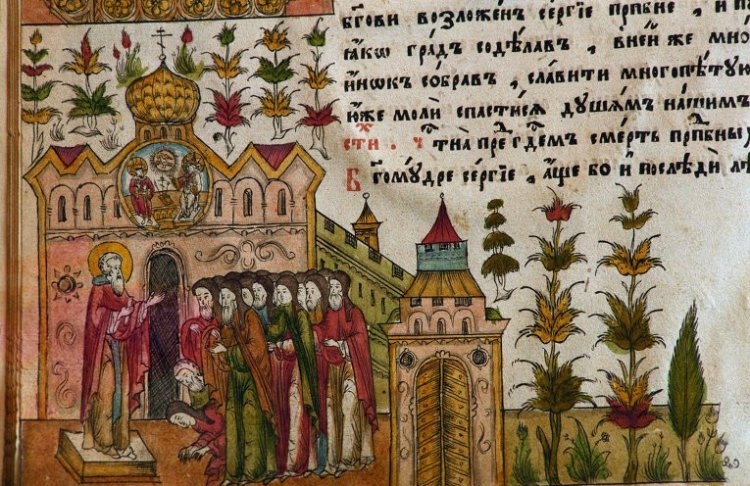 бг҃ови возложенъ сергїе прпⷣбне , и п
ꙗ́кѡ градъ содѣлавъ , в́нейже мно
и́нѡкъ собравъ , славити многопѣтꙋю
ю́же моли спастисѧ дꙋшамъ нашимъ
сти҃ . ч҇тна преⷣ гдⷭемъ смерть прпⷣбныⷯ
Бг҃омꙋдре сергїе , а́ще бо и҆ послѣди лѣ